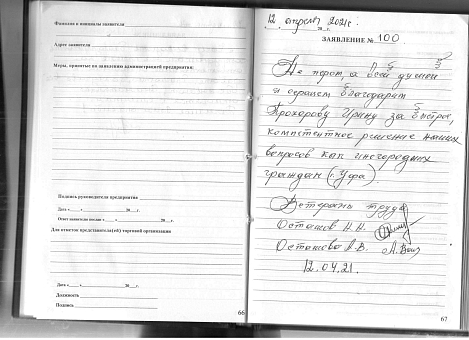 Фамилия и инициалы заявителя
Адрес заявителя
Меры, принятые по заявлению администрацией предприятия:
Подпись руководителя предприятия
Дата « » 20 г.
Ответ заявителю послан « » 20 г.
Для отметок представителя(ей) торговой организации
Дата « » 20 г.
Должность
Подпись
66
12 апреля 2021г.
20 г.
ЗАЯВЛЕНИЕ № 100
Не перот, а всей душой
и сердцем благодарят
Прохорову Ирину за быстрое,
компетентное решение наших
вопросов как иногородних
граждан (г. Уфа)
Ветераны труда
Осташов Н.Н.
Осташова А.В.
12.04.21.
67